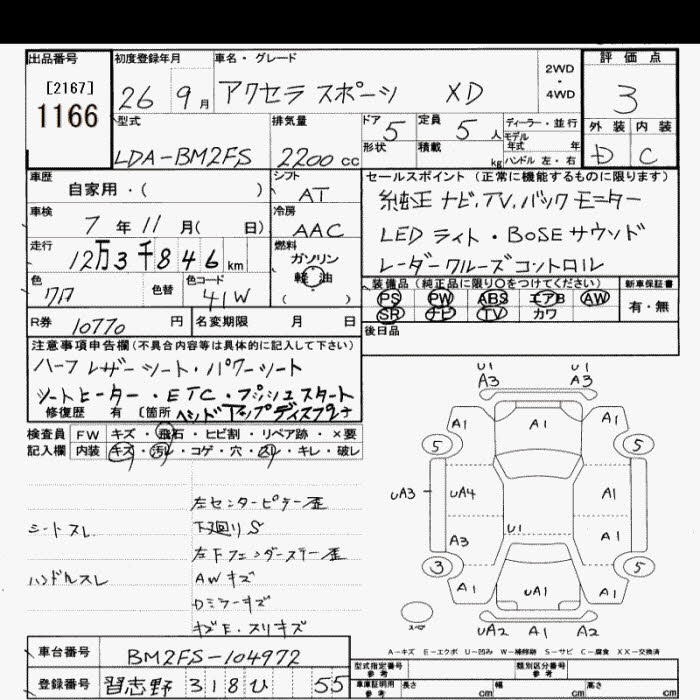 出品番号 初度登録年月 車名・グレード 2WD・4WD 評価点
[2167]
1166
26 9月 アクセラ スポーツ XD 3
型式 排気量 ドア 5 定員 5人 ディーラー・並行 外装 内装
形状 積載 kg モデル年式 年
LDA-BM2FS 2200cc ハンドル 左・右 D C
車歴 シフト セールスポイント(正常に機能するものに限ります)
自家用・( ) AT 純正ナビ,TV,バックモニター
車検 冷房
7年11月( 日) AAC LEDライト・BOSEサウンド
走行 燃料
12万3千846km ガソリン レーダークルーズコントロール
軽油
( )
色 色替 色コード 装備品(純正品に限り○をつけてください) 新車保証書
クロ 41W PS PW ABS エアB AW 有・無
SR ナビ TV カワ
R券 10770円 名変期限 月 日 後日品
注意事項申告欄(不具合内容等は具体的に記入して下さい)
ハーフレザーシート・パワーシート
シートヒーター・ETC・プッシュスタート
修復歴 有 〔箇所 ヘッドアップディスプレイ
検査員 FW キズ・飛石・ヒビ割・リペア跡・×要
記入欄 内装 キズ・汚レ・コゲ・穴・スレ・キレ・破レ
左センターピラー歪
シートスレ 下廻りS
左下フェンダーステー歪
ハンドルスレ AWキズ
Dミラーキズ
キズE・スリキズ
U1 U1
A3 A3
A1 A1 A1
5 5
uA3 uA4 A1
U1
A3 A1
3 5
A1 uA1 A1
スペア uA2 A1 A2
A-キズ E-エクボ U-凹み W-補修跡 S-サビ C-腐食 XX-交換済
車台番号 BM2FS-104972
登録番号 習志野 318 ひ 55
型式指定番号 参考 類別区分番号 参考
車庫証明用 参考 長さ cm 幅 cm 高さ cm